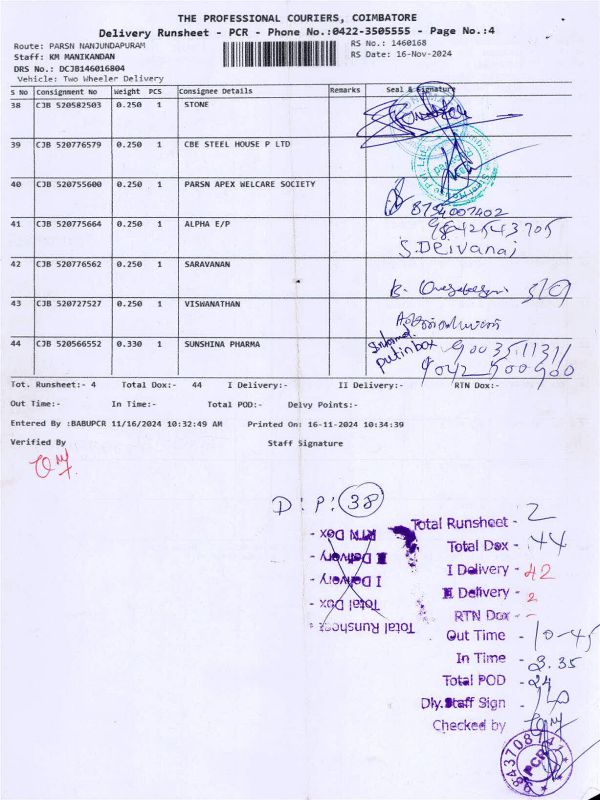 THE PROFESSIONAL COURIERS, COIMBATORE
Delivery Runsheet - PCR - Phone No.:0422-3505555 - Page No.:4
Route: PARSN NANJUNDAPURAM RS No.: 1460168
Staff: KM MANIKANDAN RS Date: 16-Nov-2024
DRS No.: DCJB146016804
Vehicle: Two Wheeler Delivery
S No Consignment No Weight PCS Consignee Details Remarks Seal & Signature
38 CJB 520582503 0.250 1 STONE
39 CJB 520776579 0.250 1 CBE STEEL HOUSE P LTD
40 CJB 520755600 0.250 1 PARSN APEX WELCARE SOCIETY
8754007402
41 CJB 520775664 0.250 1 ALPHA E/P 9842543705
S. Deivanai
42 CJB 520776562 0.250 1 SARAVANAN
43 CJB 520727527 0.250 1 VISWANATHAN
44 CJB 520566552 0.330 1 SUNSHINA PHARMA
Informed
put in box
Tot. Runsheet:- 4 Total Dox:- 44 I Delivery:- II Delivery:- RTN Dox:-
Out Time:- In Time:- Total POD:- Delvy Points:-
Entered By :BABUPCR 11/16/2024 10:32:49 AM Printed On: 16-11-2024 10:34:39
Verified By Staff Signature
D: P: 38
Total Runsheet - 2
Total Dox - 44
I Delivery - 42
II Delivery - 2
RTN Dox - -
Out Time - 10-45
In Time - 3.35
Total POD - 24
Dly.Staff Sign -
Checked by
RTN Dox -
II Delivery -
I Delivery -
Total Dox -
Total Runsheet -
PCR